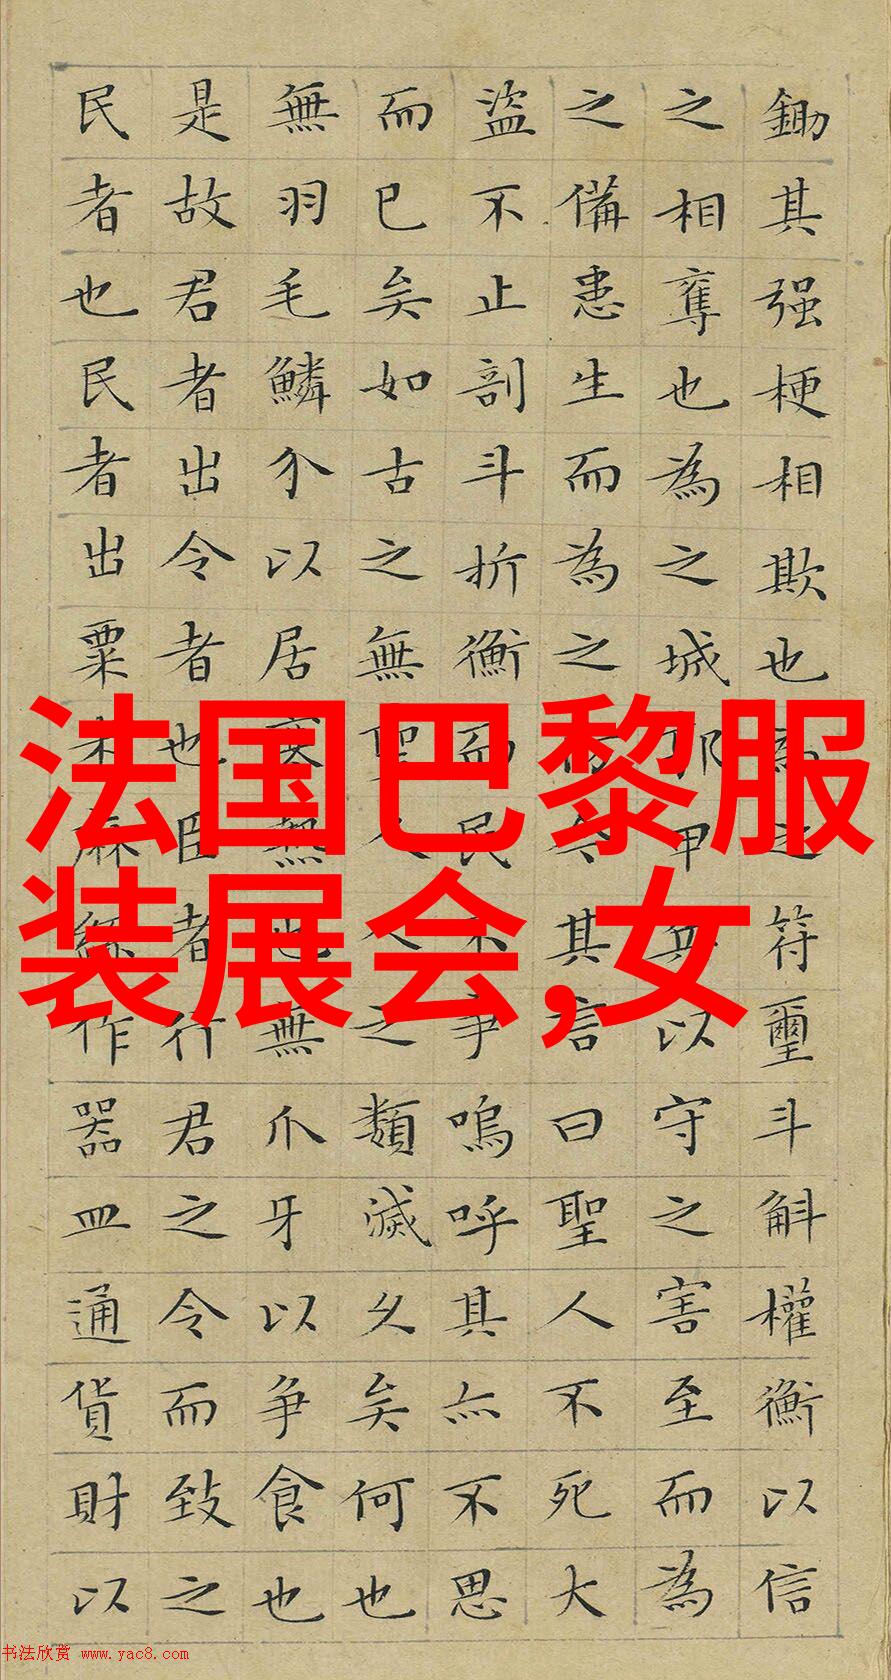 鋤其强梗相欺也為之符璽斗斛權衡以信
之相奪也為之城郭甲兵以守之害至而為
之備患生而為之防今其言曰聖人不死大
盜不止剖斗折衡而民不爭嗚呼其亦不思
而已矣如古之無聖人人之類滅久矣何也
無羽毛鱗介以居寒熱也無爪牙以爭食也
是故君者出令者也臣者行君之令而致之
民者也民者出粟米麻絲作器皿通貨財以
法国巴黎服
装展会,女
书法欣赏 www.yac8.com